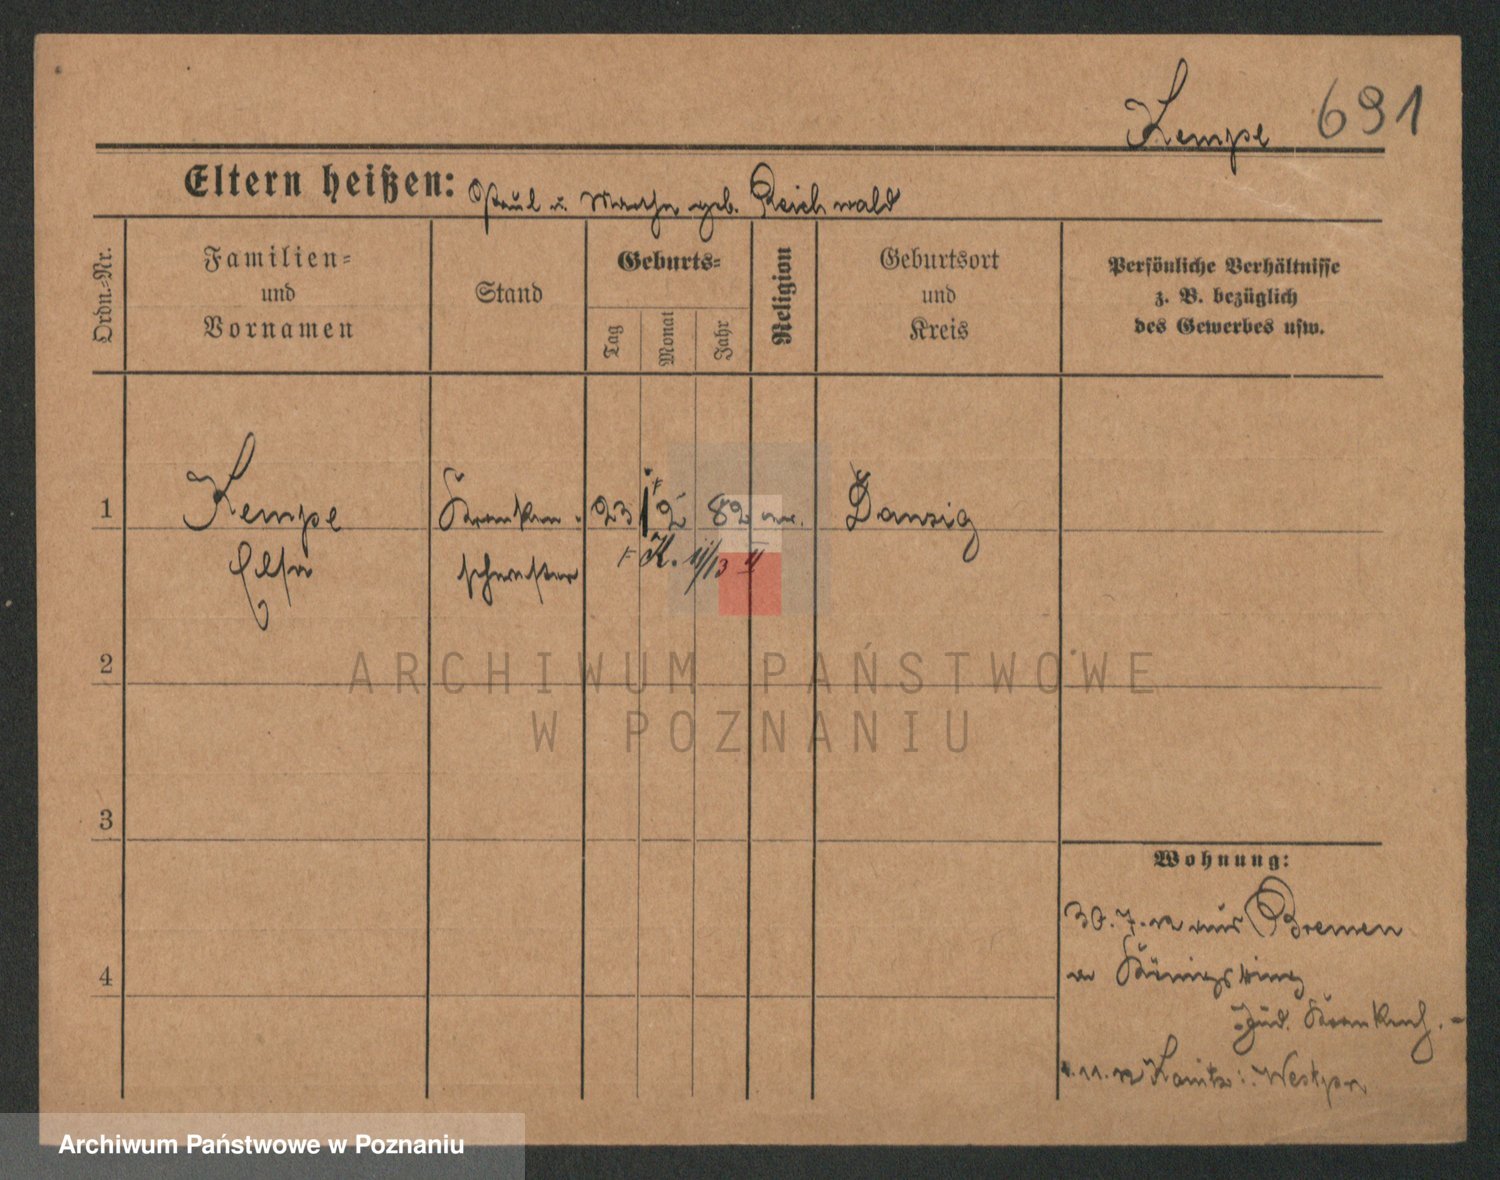 Kempe 691
Eltern heißen: Paul u. Martha geb. Reichwald
Ordn.-Nr.
Familien-
und
Vornamen
Stand
Geburts-
Tag
Monat
Jahr
Religion
Geburtsort
und
Kreis
Persönliche Verhältnisse
z. B. bezüglich
des Gewerbes usw.
1 Kempe Kranken- 23 2 82 Danzig
Elsa schwester K. 11/13
2
3
4
Wohnung:
30. 7. 12 aus Bremen
Königsring
Jüd. Krankenh.
11. 12 Konitz Westpr
ARCHIWUM PAŃSTWOWE
W POZNANIU
Archiwum Państwowe w Poznaniu